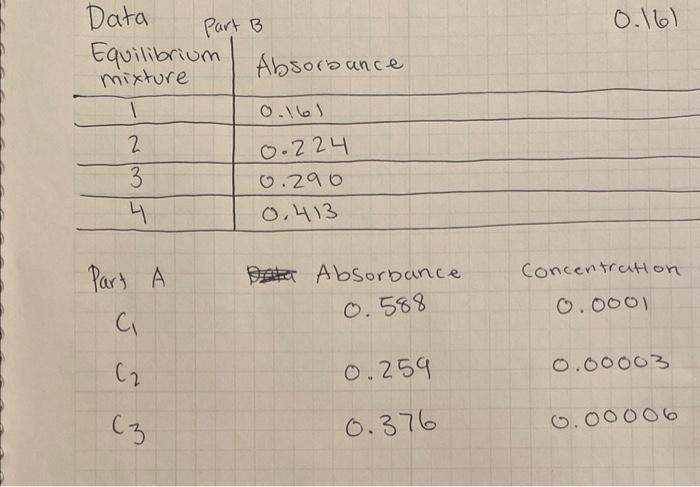 Data Part B 0.161
Equilibrium mixture Absorbance
1 0.161
2 0.224
3 0.290
4 0.413
Part A Absorbance Concentration
C1 0.588 0.0001
C2 0.259 0.00003
C3 0.376 0.00006